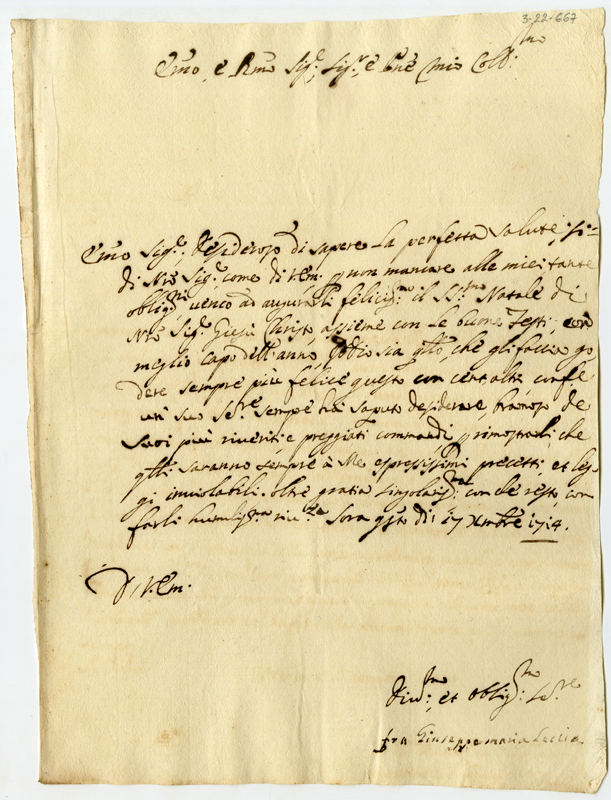 3-22-667
Emo, e Rmo Sig.r, Sig.r e Pne mio Coll.mo
Emo Sig.r desideroso di sapere la perfetta salute, si
di Nro Sig.r come di V.Em. p non mancare alle miei tante
oblig.ni vengo ad augurarli felicis.mo il SS.mo Natale di
Nro Sig.r Giesù Christo, assieme con le buone Feste, con
meglio capo dell'anno, Iddio sia qllo, che gli faccia go
dere sempre più felice questo con cent'altri, confe
suo Se.re sempe hà saputo desiderare, bramoso de
suoi più riveriti, e preggiati commandi p rimostrarli che
qlli saranno sempre à Me espressissimi precetti, et leg
gi inviolabili. oltre gratia singolaris.ma con che resto, con
farli humilis.ma riv.za Sora qsto dì 17 Xmbre 1714.
Di V.Em.
Div.mo, et Oblig.mo Se.re
fra Giuseppe maria Leccia